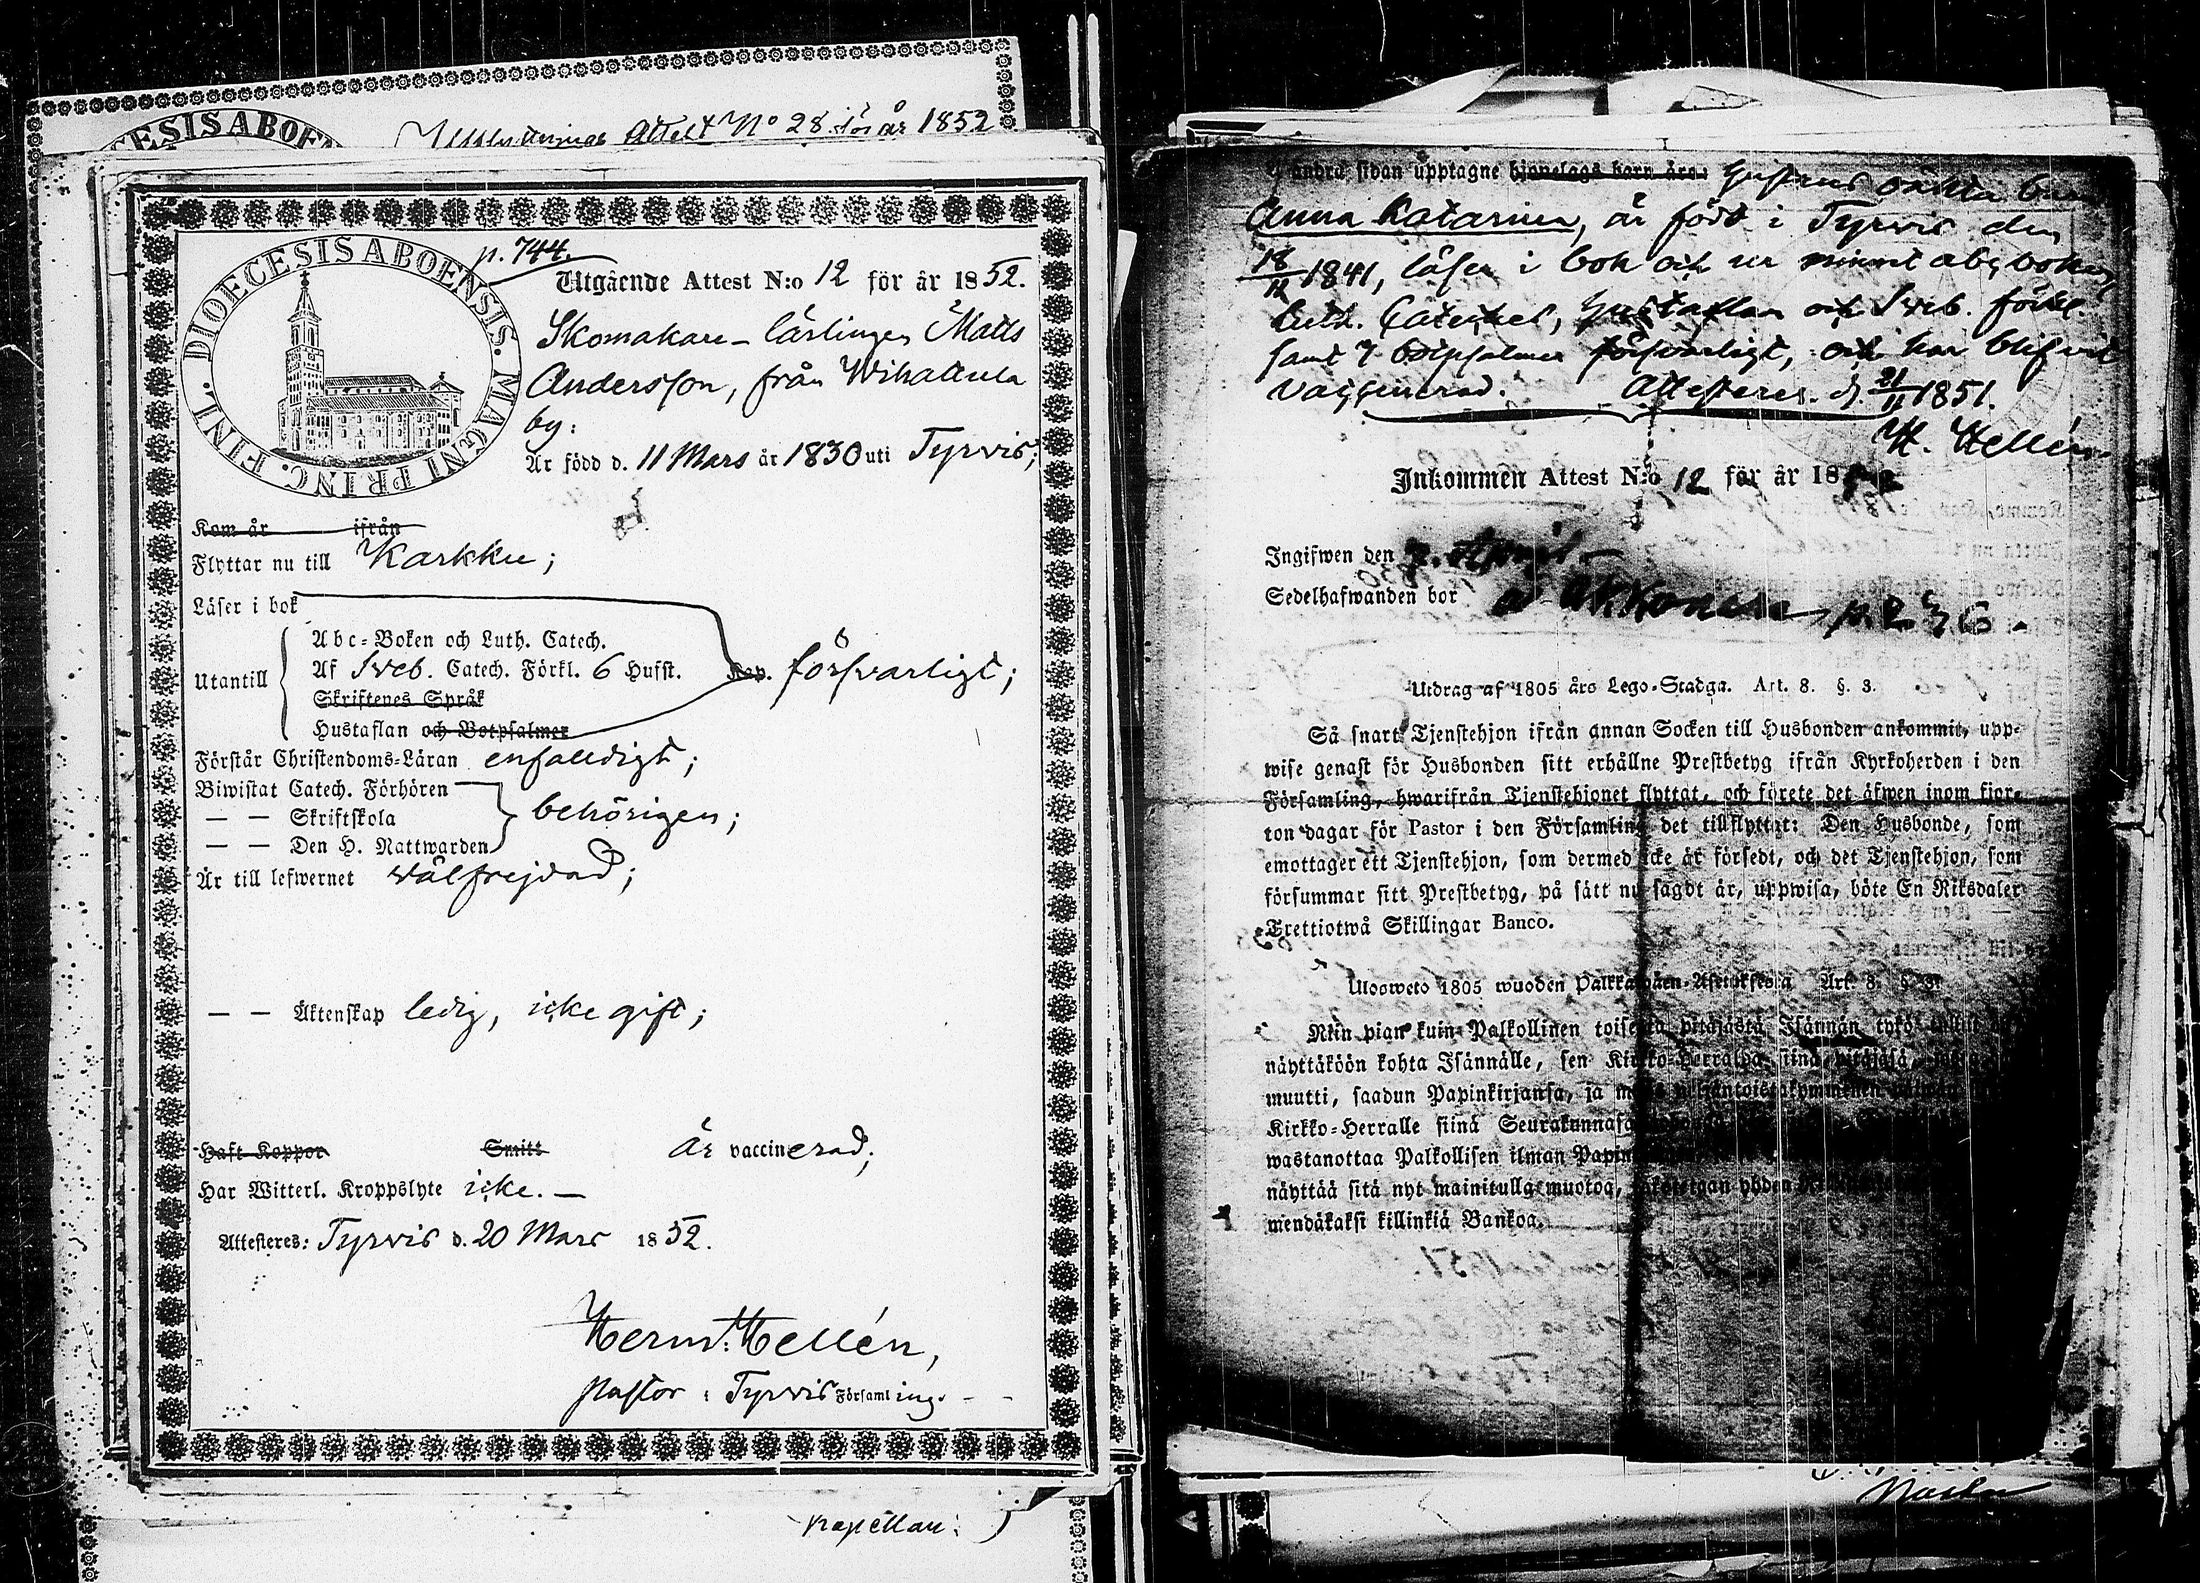 Attest No 28 för år 1852
p. 744.
DIOECESIS ABOENSIS. MAGNI PRINC. FINL.
Utgående Attest N:o 12 för år 1852.
Skomakare-lärlingen Matts
Andersson, från Wihattula
by:
Är född d. 11 Mars år 1830 uti Tyrvis;
Kom år ifrån
Flyttar nu till Karkku;
Läser i bok
Utantill
Abc-Boken och Luth. Catech.
Af Sveb. Catech. Förkl. 6 Hufst. Kap. försvarligt;
Skriftenes Språk
Hustaflan och Botpsalmer
Förstår Christendoms-Läran enfalldigt;
Biwistat Catech. Förhören
— — Skriftskola behörigen;
— — Den H. Nattwarden
Är till lefwernet välfrejdad;
— — Äktenskap ledig, icke gift;
Haft Koppor Smitt Är vaccinerad;
Har Witterl. Kroppslyte icke. —
Attesteres: Tyrvis d. 20 Mars 1852.
Herm. Hellén,
Pastor i Tyrvis Församling.
kapellan.
andra sidan upptagne hjonelags barn äro:
Anna Katarina, är född i Tyrvis den
18/11 1841, läser i bok och ur minnet abcboken,
Luth. Cateches, Hustaflan och Sveb. förkl.
samt 7 botpsalmer försvarligt, och har blifvit
vaccinerad. Attesteres d. 21/11 1851.
H. Hellén
Inkommen Attest N:o 12 för år 18
Ingifwen den 7. April —
Sedelhafwanden bor å p. 236.
Utdrag af 1805 års Lego-Stadga. Art. 8. §. 3.
Så snart Tjenstehjon ifrån annan Socken till Husbonden ankommit, upp-
wise genast för Husbonden sitt erhållne Prestbetyg ifrån Kyrkoherden i den
Församling, hwarifrån Tjenstehjonet flyttat, och förete det äfwen inom fjor-
ton dagar för Pastor i den Församling det tillflyttat: Den Husbonde, som
emottager ett Tjenstehjon, som dermed icke är försedt, och det Tjenstehjon, som
försummar sitt Prestbetyg, på sätt nu sagdt är, uppwisa, böte En Riksdaler
Trettiotwå Skillingar Banco.
Ulosweto 1805 wuoden Palkkawäen-Asetuksesta Art. 8. §. 3.
Niin pian kuin Palkollinen toisesta pitäjästä Isännän tykö
näyttäköön kohta Isännälle, sen Kirkko-Herralda siinä pitäjäsä,
muutti, saadun Papinkirjansa, ja
Kirkko-Herralle siinä Seurakunnasa
wastanottaa Palkollisen ilman
näyttää sitä nyt mainitulla muotoa,
mendäkaksi killinkiä Bankoa.